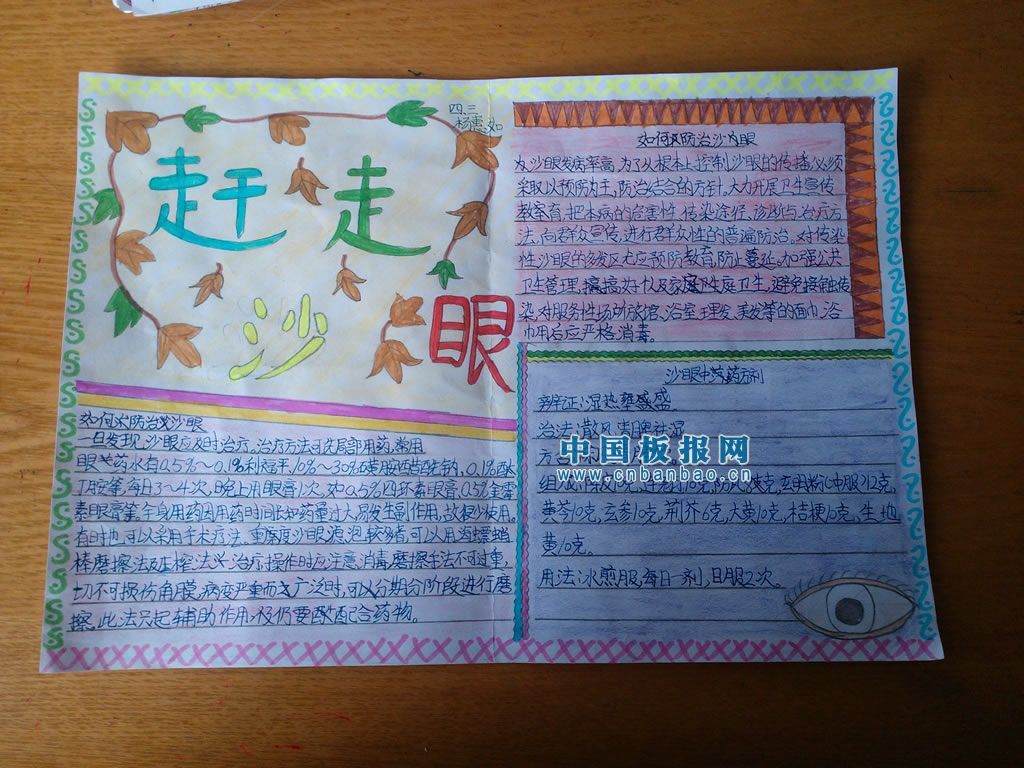 四.三
杨惠如
赶走
沙眼
如何防治沙眼
一旦发现沙眼应及时治疗,治疗方法可先局部用药,常用
眼药水有0.5%~0.1%利福平,10%~30%磺胺醋酰钠,0.1%酞
丁胺等,每日3~4次,晚上用眼膏1次,如0.5%四环素眼膏,0.5%金霉
素眼膏等。全身用药因用药时间长和药量过大易发生副作用,故很少使用。
有时也可以采用手术疗法。重度沙眼滤泡较多者,可以用海螵蛸
棒磨擦法及压榨法治疗,操作时应注意消毒,磨擦手法不可过重,
切不可损伤角膜,病变严重而广泛时,可以分期分阶段进行磨
擦,此法只起辅助作用,仍要配合药物。
如何防治沙眼
沙眼发病率高,为了从根本上控制沙眼的传播,必须
采取以预防为主,防治结合的方针,大力开展卫生宣传
教育,把本病的危害性,传染途径,诊断与治疗方
法,向群众宣传,进行群众性的普遍防治。对传染
性沙眼的多发区尤应预防教育,防止蔓延。加强公共
卫生管理,搞好个人及家庭卫生,避免接触传
染,对服务性场所旅馆,浴室,理发,美发等的面巾,浴
巾用后应严格消毒。
沙眼中药方剂
辨证:湿热壅盛
治法:散风清脾祛湿
中国板报网
www.cnbanbao.cn
黄芩10克,玄参10克,荆芥6克,大黄10克,桔梗10克,生地
黄10克。
用法:水煎服,每日一剂,日服2次。